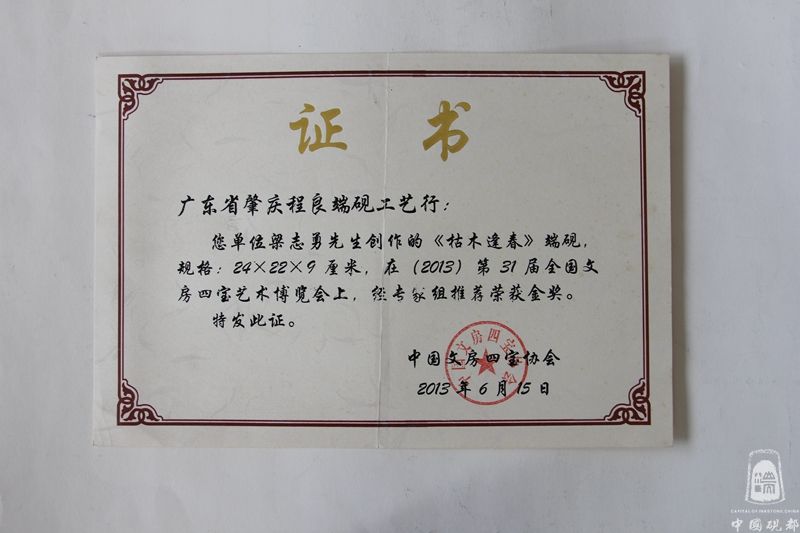 证 书
广东省肇庆程良端砚工艺行：
您单位梁志勇先生创作的《枯木逢春》端砚，
规格：24×22×9 厘米，在（2013）第 31 届全国文
房四宝艺术博览会上，经专家组推荐荣获金奖。
特发此证。
中国文房四宝协会
2013 年 6 月 15 日
中国文房四宝协会
CAPITAL OF INKSTONE, CHINA
中国砚都